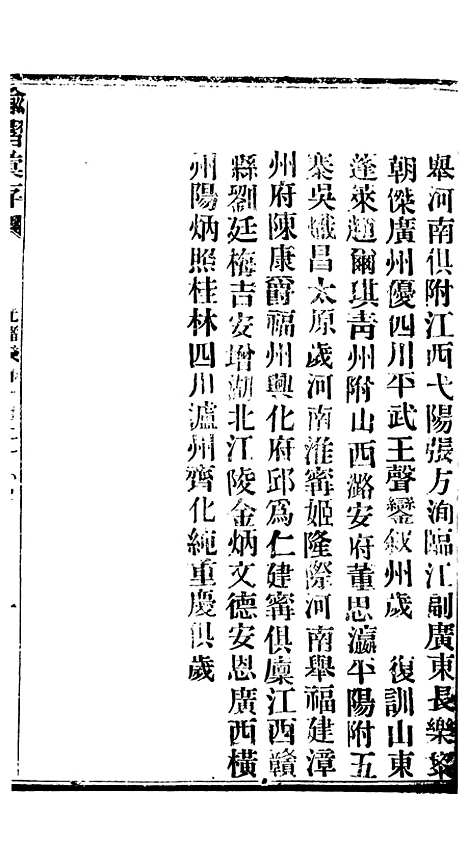 舉河南俱附江西弋陽張方洵臨江副廣東長樂
朝傑廣州優四川平武王聲鑾敘州歲　復訓山東
蓬萊趙爾琪靑州附山西潞安府董思瀛平陽附五
泰吳熾昌太原歲河南淮甯姬隆際河南舉福建漳
州府陳康爵福州興化府邱爲仁建甯俱廩江西贛
縣劉廷梅吉安增湖北江陵金炳文德安恩廣西橫
州陽炳照桂林四川瀘州齊化純重慶俱歲